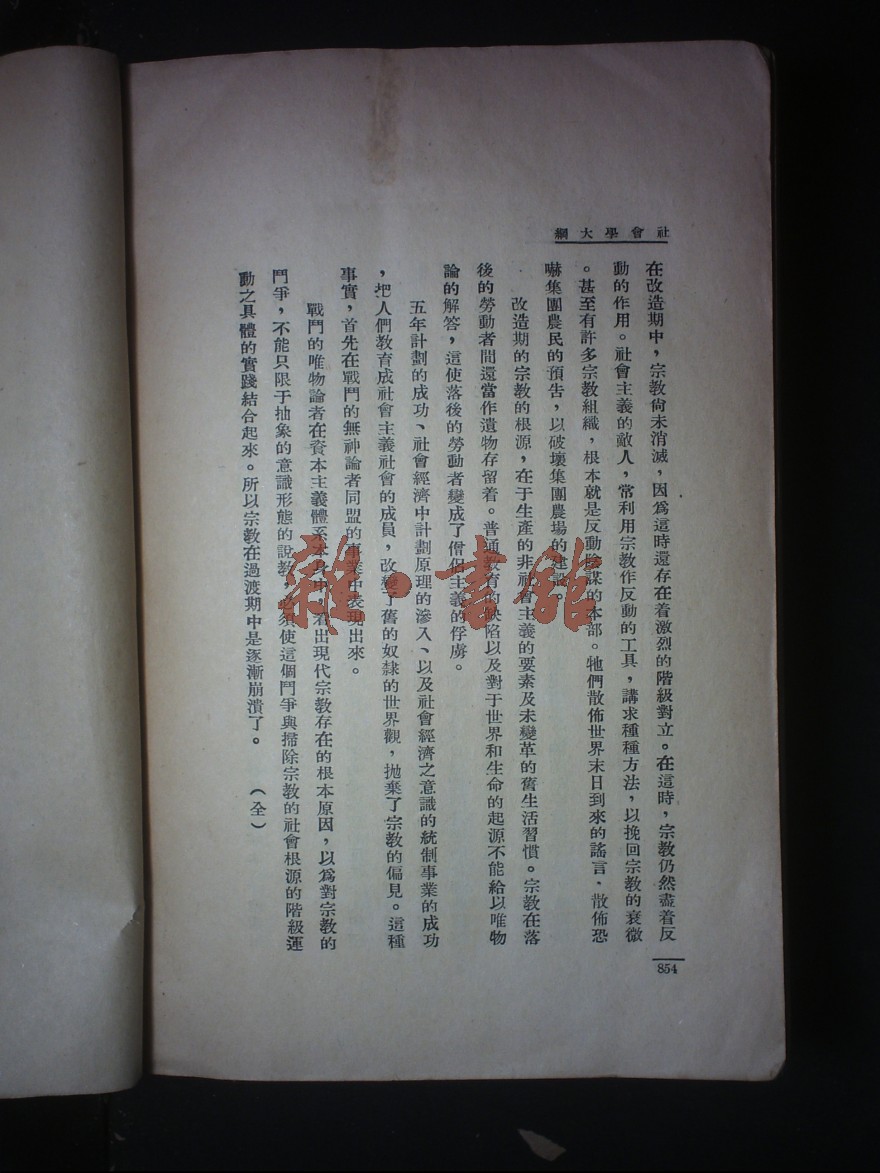 社會學大綱
在改造期中，宗教尚未消滅，因爲這時還存在着激烈的階級對立。在這時，宗教仍然盡着反
動的作用。社會主義的敵人，常利用宗教作反動的工具，講求種種方法，以挽回宗教的衰微
。甚至有許多宗教組織，根本就是反動陰謀的本部。牠們散佈世界末日到來的謠言、散佈恐
嚇集團農民的預告，以破壞集團農場的建設。
改造期的宗教的根源，在于生產的非社會主義的要素及未變革的舊生活習慣。宗教在落
後的勞動者間還當作遺物存留着。普通教育的缺陷以及對于世界和生命的起源不能給以唯物
論的解答，這使落後的勞動者變成了僧侶主義的俘虜。
五年計劃的成功、社會經濟中計劃原理的滲入、以及社會經濟之意識的統制事業的成功
，把人們教育成社會主義社會的成員，改變了舊的奴隸的世界觀，拋棄了宗教的偏見。這種
事實，首先在戰鬥的無神論者同盟的事業中表現出來。
戰鬥的唯物論者在資本主義體系本身中，看出現代宗教存在的根本原因，以爲對宗教的
鬥爭，不能只限于抽象的意識形態的說教，必須使這個鬥爭與掃除宗教的社會根源的階級運
動之具體的實踐結合起來。所以宗教在過渡期中是逐漸崩潰了。（全）
854
雜·書館